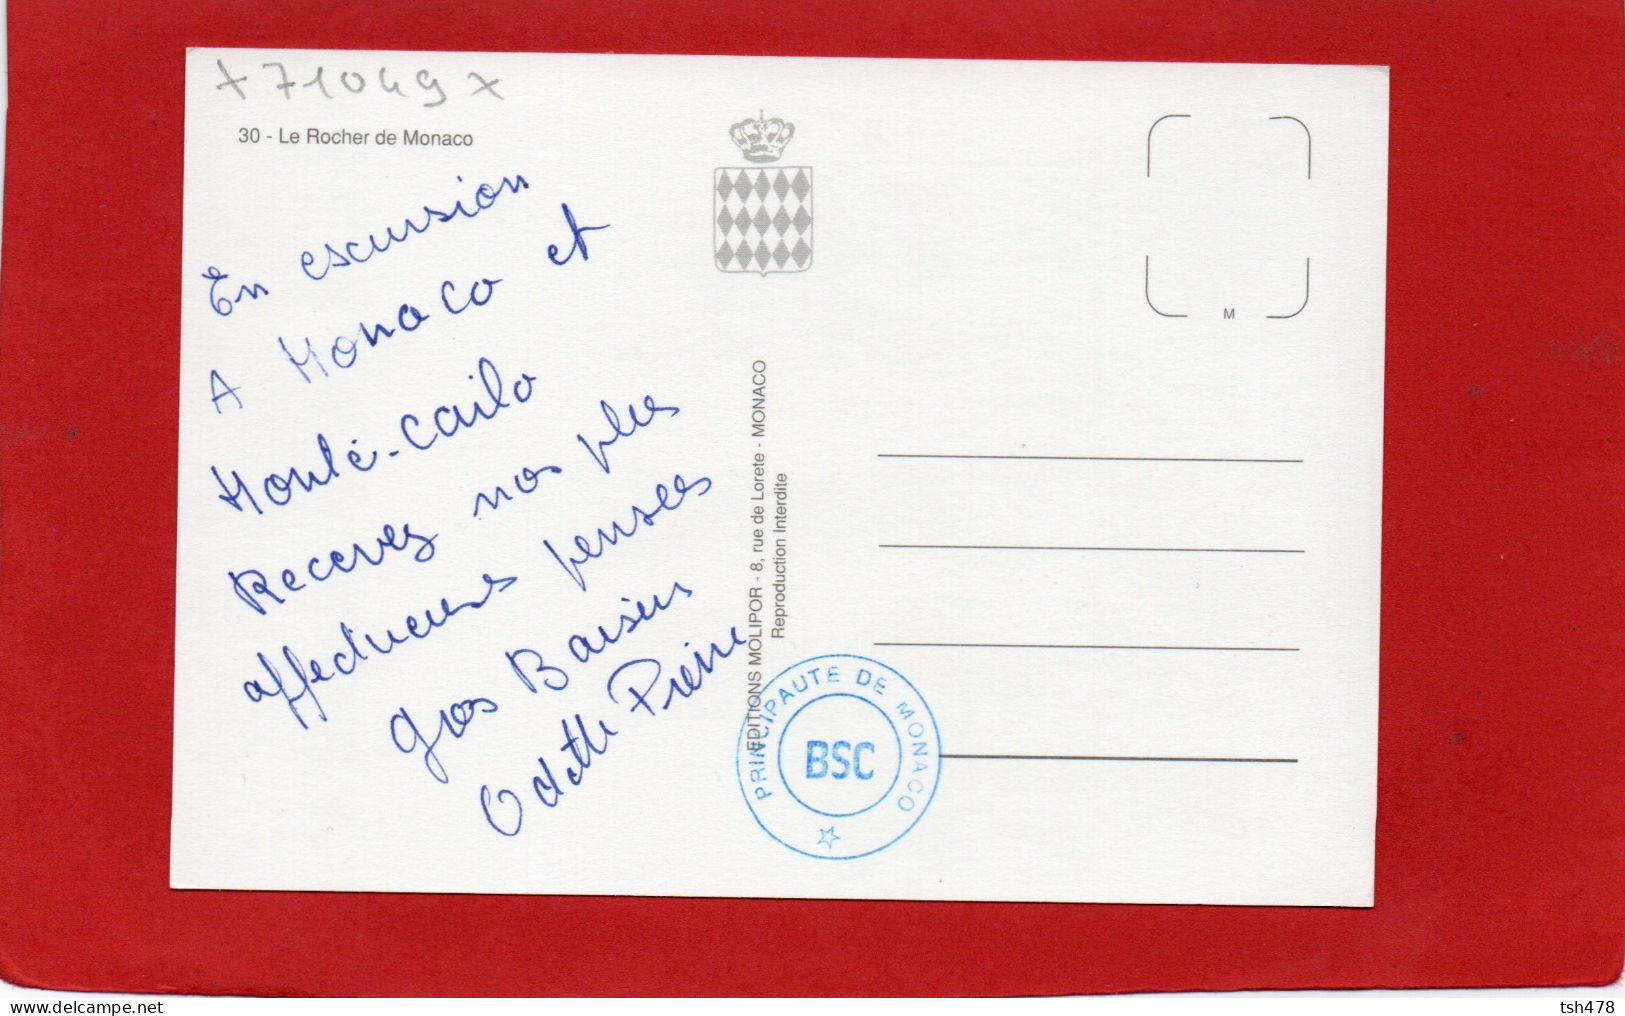 + 71049 x
30 - Le Rocher de Monaco
En escursion
A Monaco et
Monté-Carlo
Recevez nos plus
affectueuses pensees
gros Baisers
Odette Pierre
EDITIONS MOLIPOR - 8, rue de Lorete - MONACO
Reproduction Interdite
M
PRINCIPAUTE DE MONACO
BSC
delcampe.net
tsh478